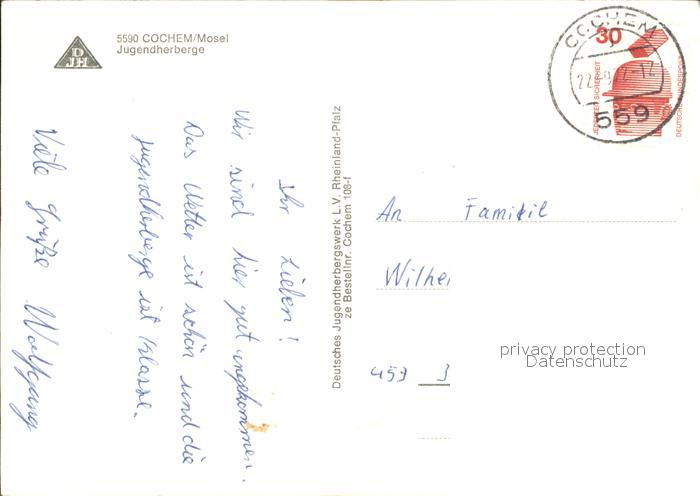 5590 COCHEM/Mosel
Jugendherberge
DJH
Ihr Lieben!
Wir sind hier gut angekommen.
Das Wetter ist schön und die
Jugendherberge ist Klasse.
Viele Grüße Wolfgang
Deutsches Jugendherbergswerk L.V. Rheinland-Pfalz
ze Bestellnr. Cochem 108-f
COCHEM
559
30
JEDERZEIT SICHERHEIT
DEUTSCHE BUNDESPOST
An Familie
Wilhe
453 3
privacy protection
Datenschutz